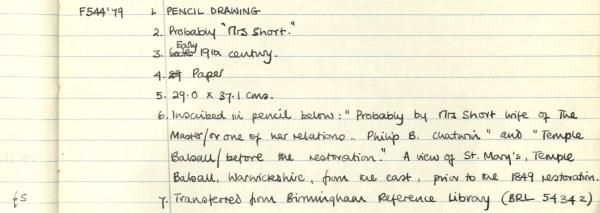 F544'79 1. PENCIL DRAWING
2. Probably "Mrs Short."
3. Early 19th century.
4. Paper
5. 29.0 x 37.1 cms.
6. Inscribed in pencil below: "Probably by Mrs Short wife of The
Master/or one of her relations.. Philip B. Chatwin" and "Temple
Balsall/before the restoration." A view of St. Mary's, Temple
Balsall, Warwickshire, from the east, prior to the 1849 restoration.
£5 7. Transferred from Birmingham Reference Library (BRL 54342)